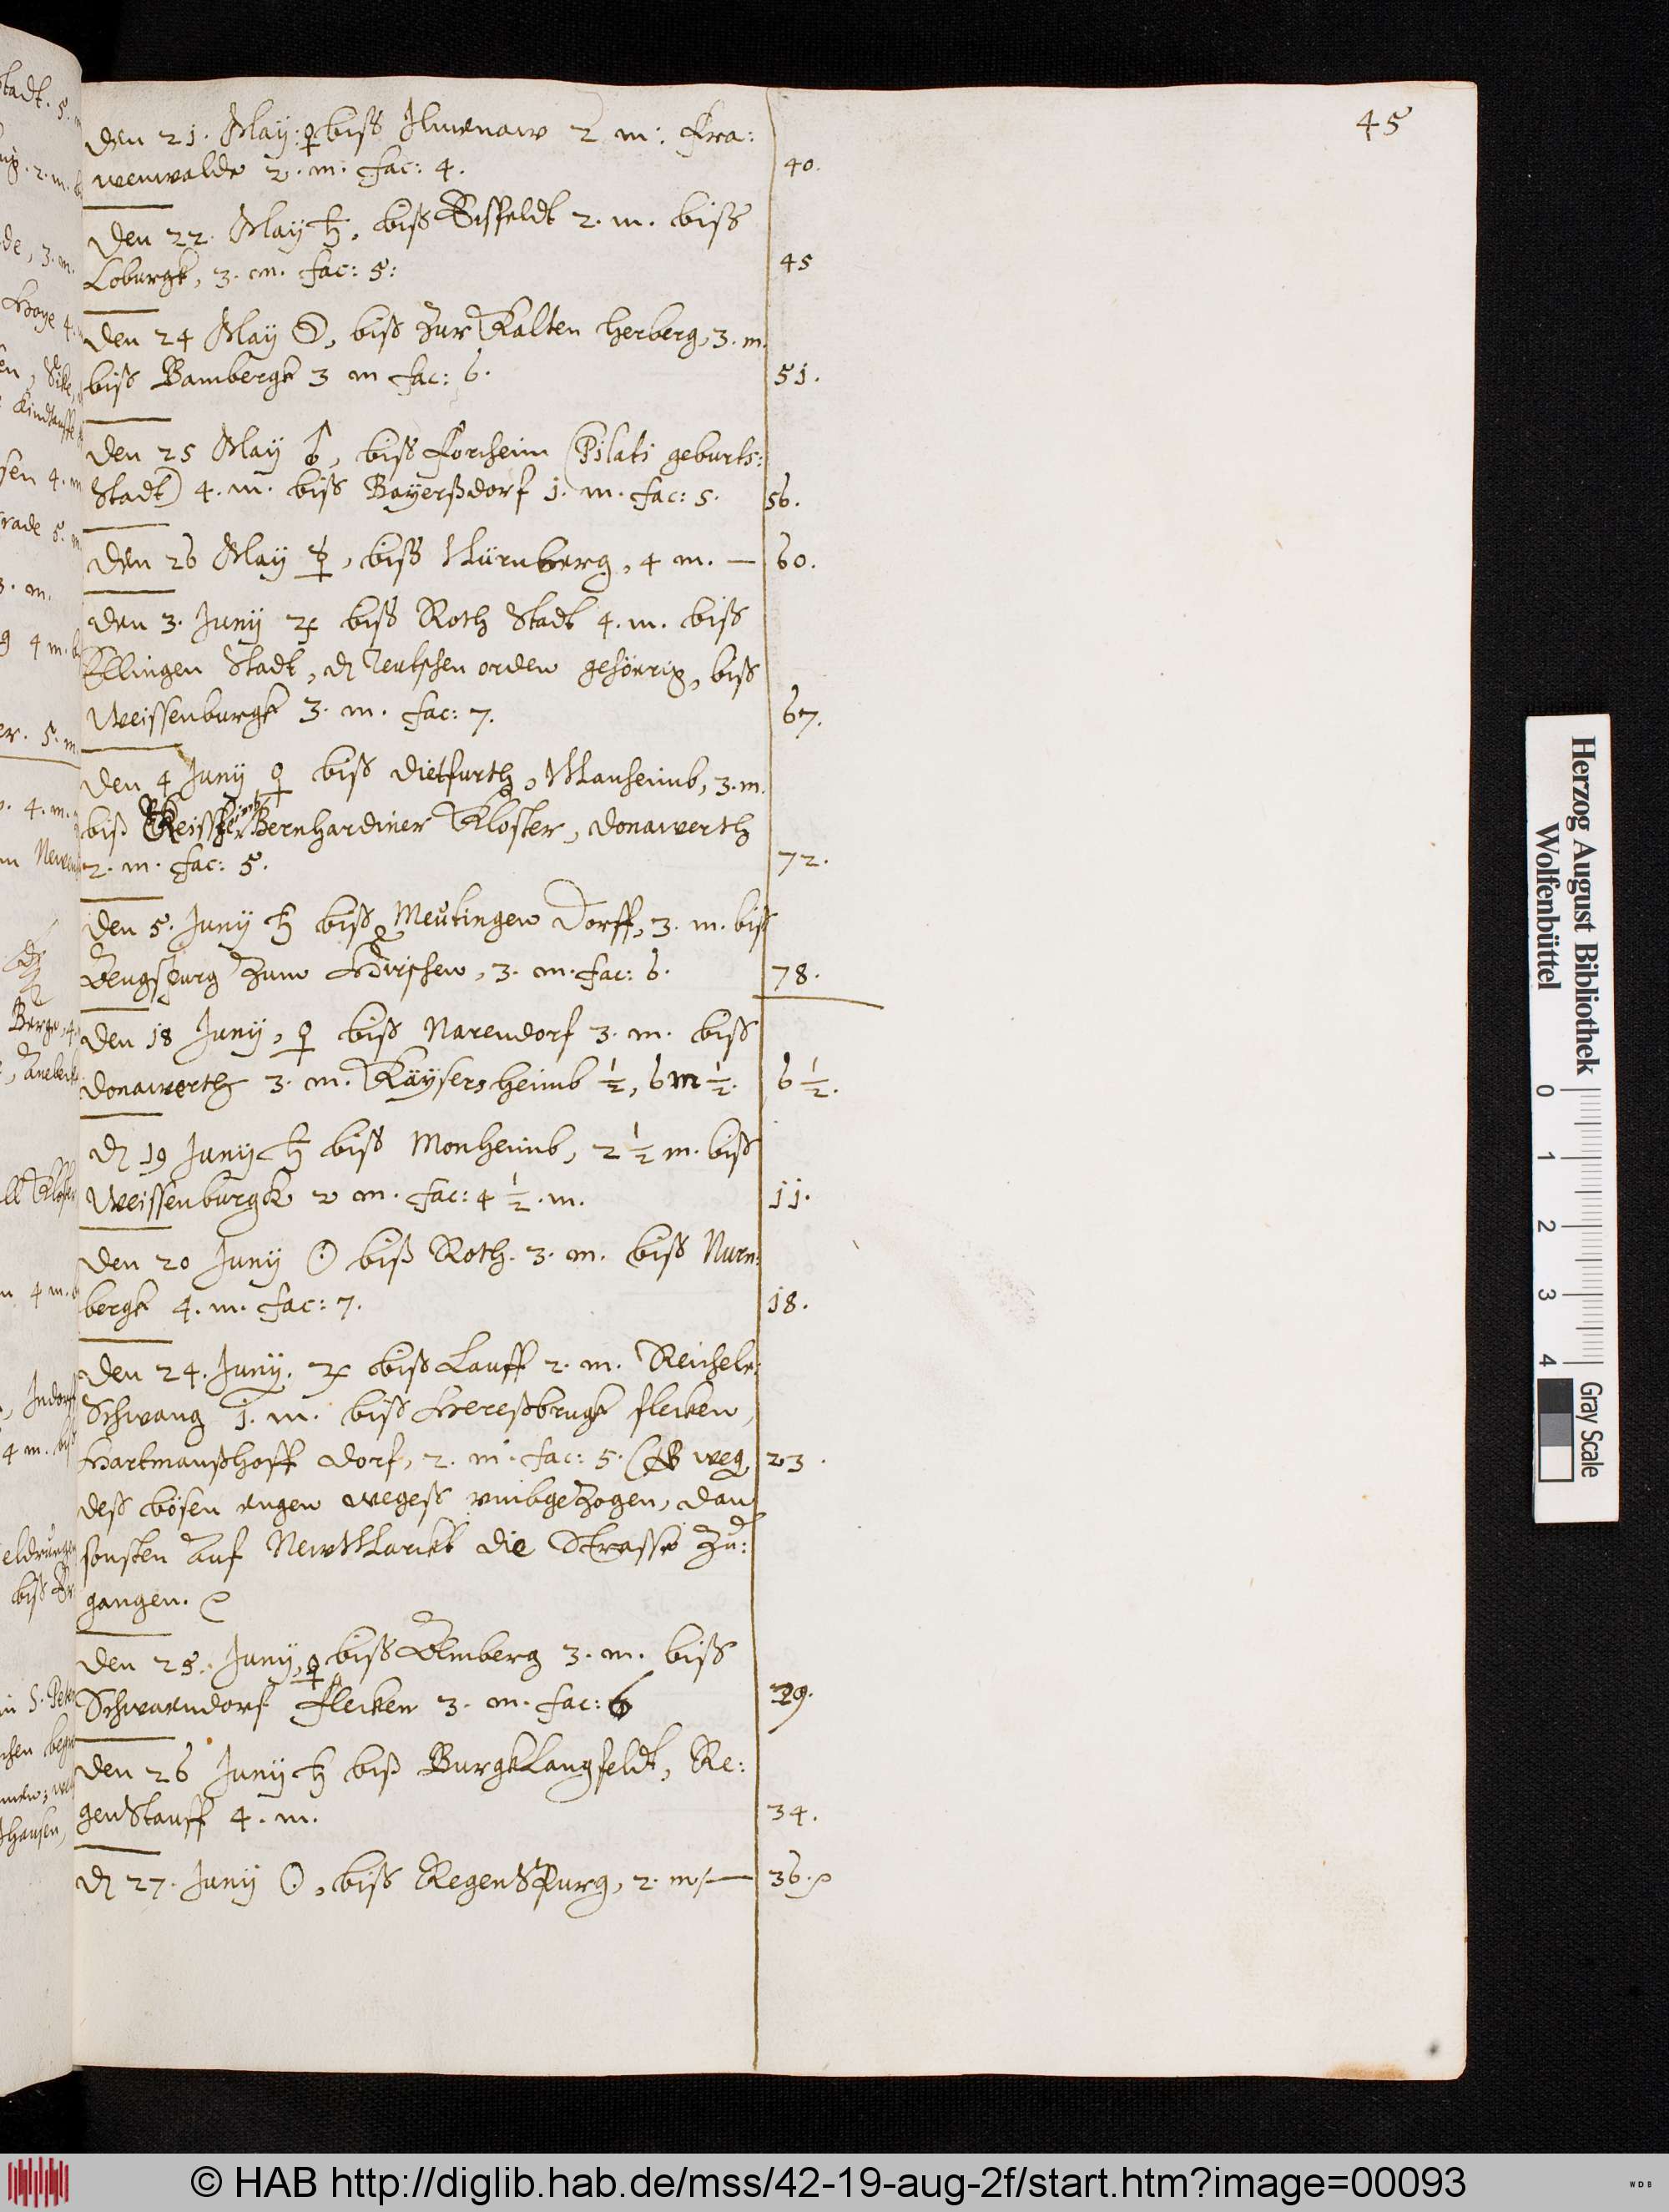 45
Den 21. Maÿ. ♀ biß Ilmenaw 2 m: Fra:
wenwalde 2. m. fac: 4. 40.
Den 22. Maÿ ♄, biß Eisfeldt 2. m. biß
Coburgk, 3. m. fac: 5: 45
Den 24 Maÿ ☽, biß Zur Kalten herberg, 3. m.
biß Bambergk 3 m fac: 6. 51.
Den 25 Maÿ ♂, biß Forcheim (Pilati geburts:
Stadt) 4. m. biß Bayerßdorf 1. m. fac: 5. 56.
Den 26 Maÿ ☿, biß Nürnberg, 4 m. — 60.
Den 3. Junÿ ♃ biß Roth Stadt 4. m. biß
Ellingen Stadt, dem Teutschen orden gehörig, biß
Weissenburgk 3. m. fac: 7. 67.
Den 4 Junÿ ♀ biß Dietfurth, Manheimb, 3. m.
biß Bernhardiner Kloster, Donawerth
2. m. fac: 5. 72.
Den 5. Junÿ ♄ biß Meutingen Dorff, 3. m. biß
Augspurg Zum Hirschen, 3. m. fac: 6. 78.
Den 18 Junÿ, ♀ biß Narendorf 3. m. biß
Donawerth 3. m. Käÿsersheimb ½, 6 m ½. 6 ½.
den 19 Junÿ ♄ biß Monheimb, 2 ½ m. biß
Weissenburgk 2 m. fac: 4 ½. m. 11.
Den 20 Junÿ ☉ biß Roth. 3. m. biß Nurn:
bergk 4. m. fac: 7. 18.
Den 24. Junÿ. ♃ biß Lauff 2. m. Reichel:
Schwang 1. m. biß Hereßbrugk flecken,
Hartmanßhoff dorf, 2. m. fac: 5. (NB weg. 23.
deß bösen engen wegeß vmbgeZogen, dan
sonsten auf NewMarckt die Strasse Zu:
gangen.
Den 25. Junÿ, ♀ biß Amberg 3. m. biß
Schwarndorf flecken 3. m. fac: 6 29.
Den 26 Junÿ ♄ biß BurgkLangfeldt, Re:
genStauff 4. m. 34.
den 27. Junÿ ☉, biß RegenSPurg, 2. m — 36.
Herzog August Bibliothek
Wolfenbüttel
0 1 2 3 4
Gray Scale
© HAB http://diglib.hab.de/mss/42-19-aug-2f/start.htm?image=00093
WDB